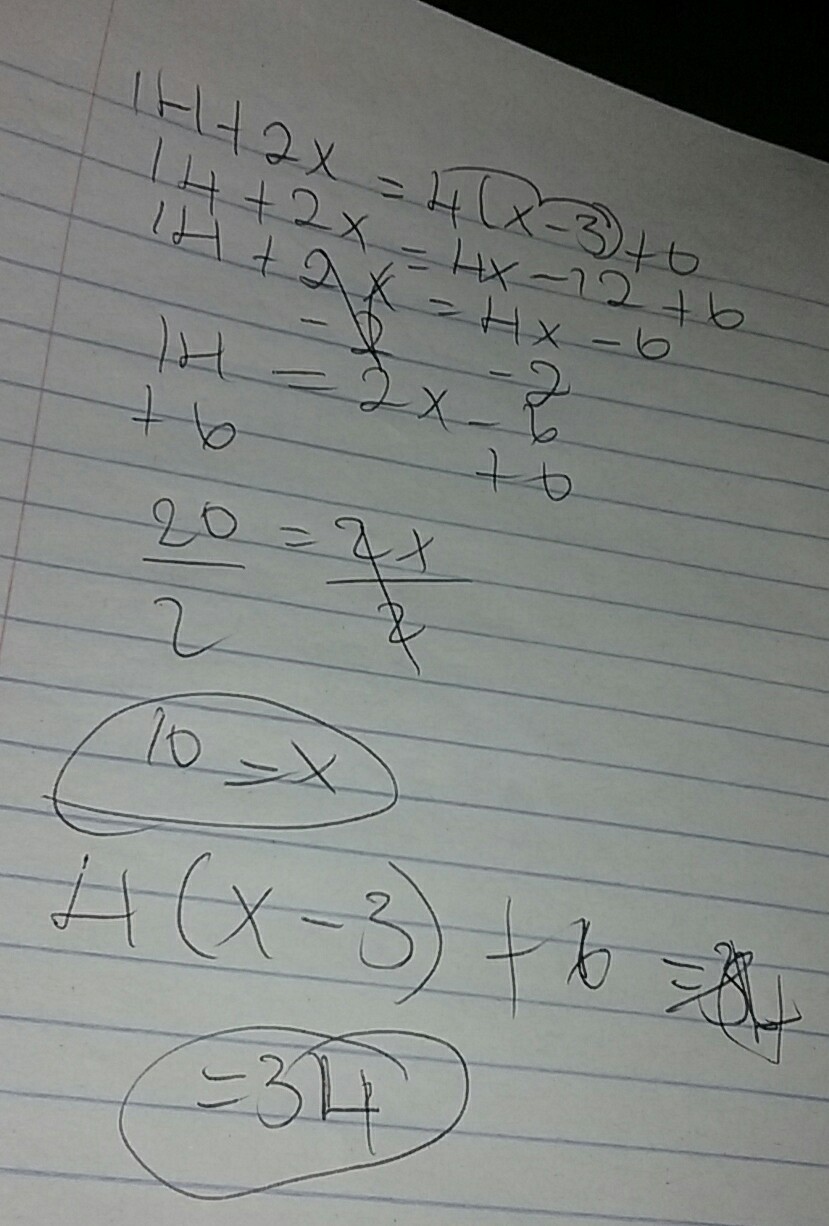 14 + 2x = 4(x - 3) + 6
14 + 2x = 4x - 12 + 6
14 + 2x = 4x - 6
- 2 - 2
14 = 2x - 6
+ 6 + 6
20 = 2x
2 2
10 = x
4(x - 3) + 6 =
= 34